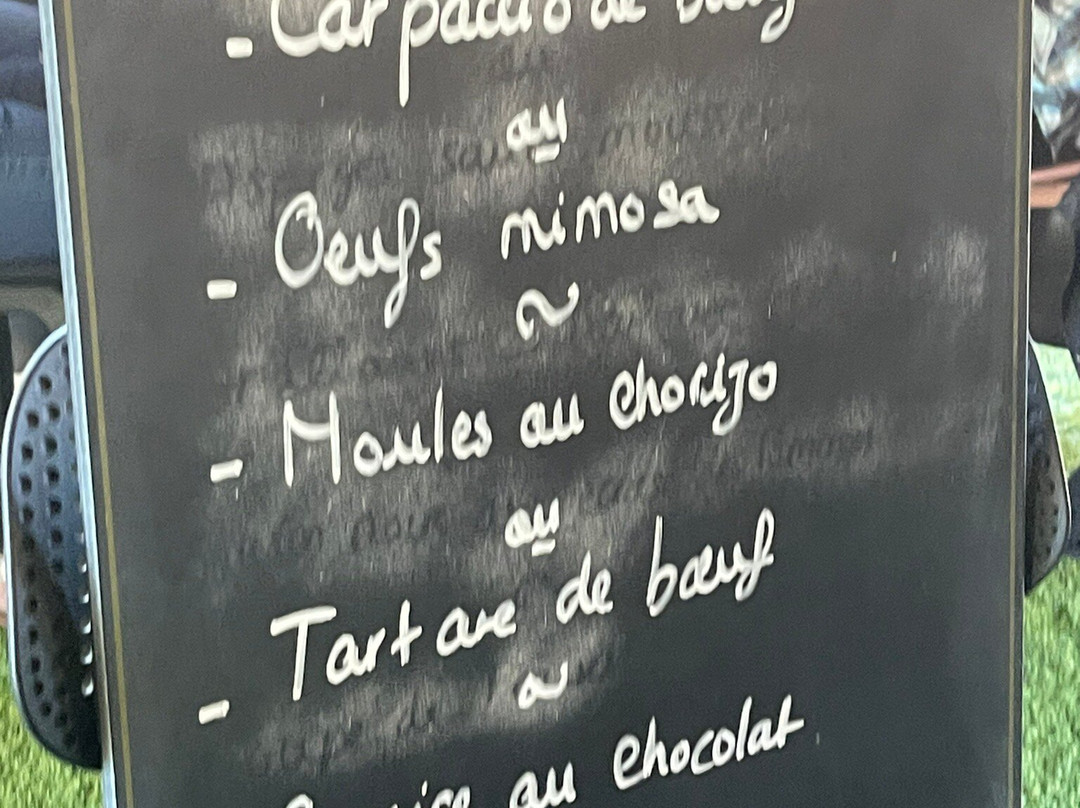 - Carpaccio de bœuf
ou
- Oeufs mimosa
~
- Moules au Chorizo
ou
- Tartare de bœuf
~
au chocolat